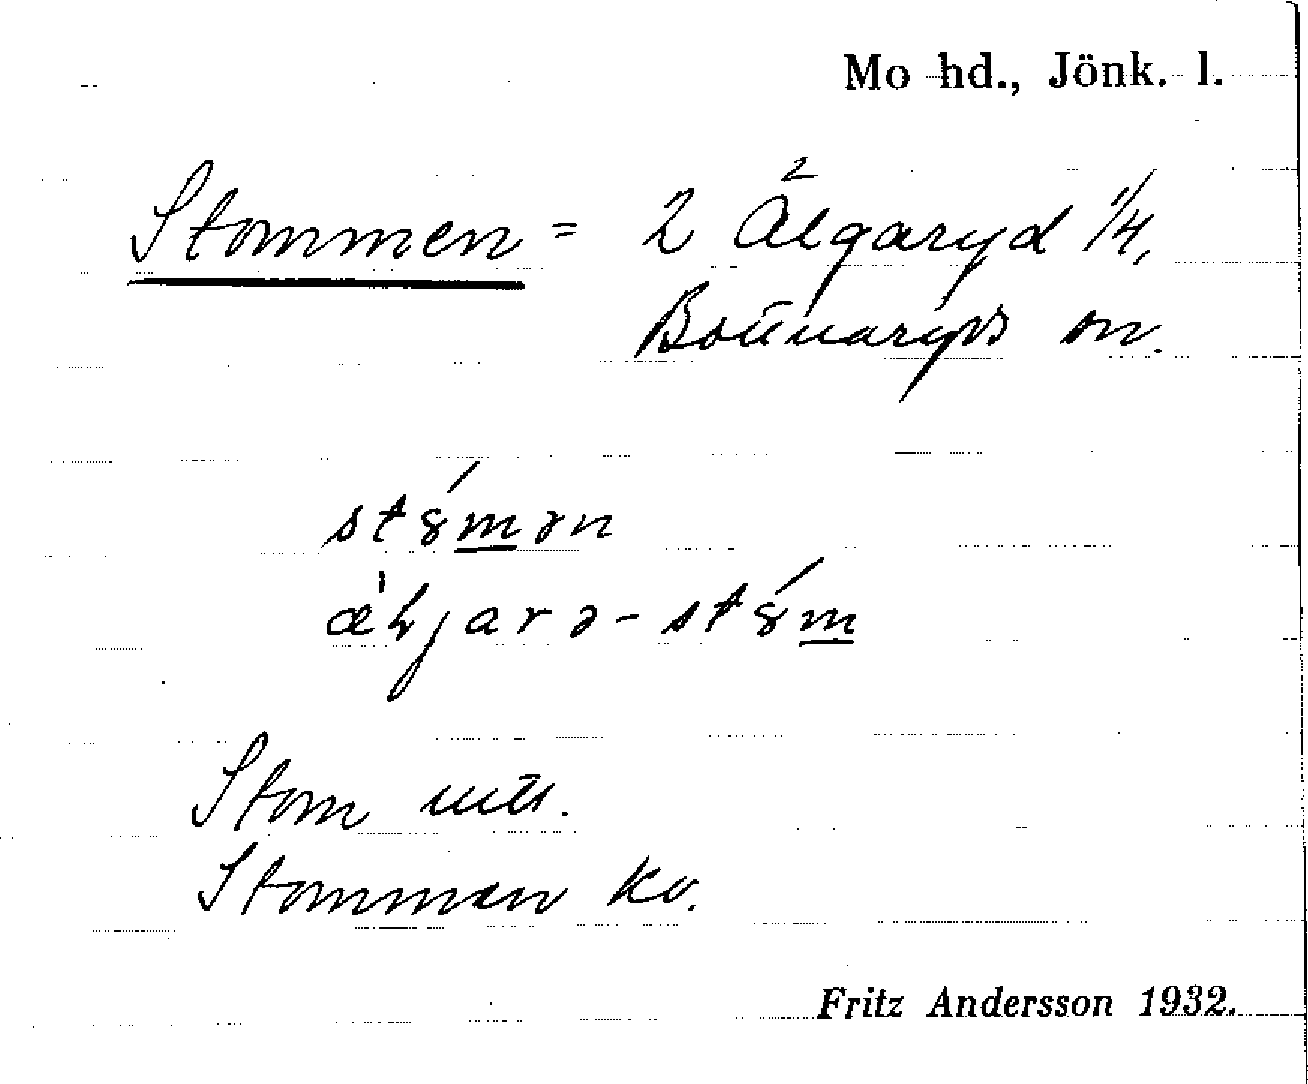 Mo hd., Jönk. l.
Stommen = 2 Älgaryd 1/4,
Bottnaryds sn.
stómən
æljarə-stóm
Stom
Stommen
Fritz Andersson 1932.